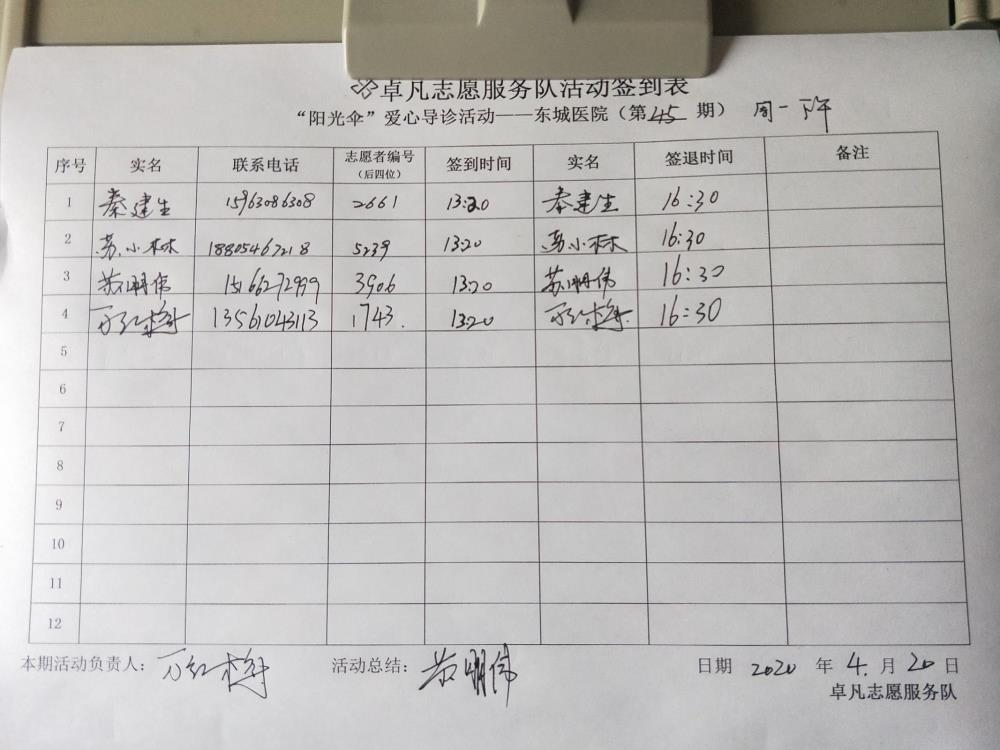 卓凡志愿服务队活动签到表
“阳光伞”爱心导诊活动——东城医院（第45期） 周一下午
序号 实名 联系电话 志愿者编号（后四位） 签到时间 实名 签退时间 备注
1 秦建生 15963086308 2661 13:20 秦建生 16:30
2 苏小林 18805467218 5239 13:20 苏小林 16:30
3 苏明伟 15166272999 3906 13:20 苏明伟 16:30
4 万红梅 13561043113 1743. 13:20 万红梅 16:30
5
6
7
8
9
10
11
12
本期活动负责人：万红梅 活动总结：苏明伟 日期 2020 年 4. 月 20 日
卓凡志愿服务队